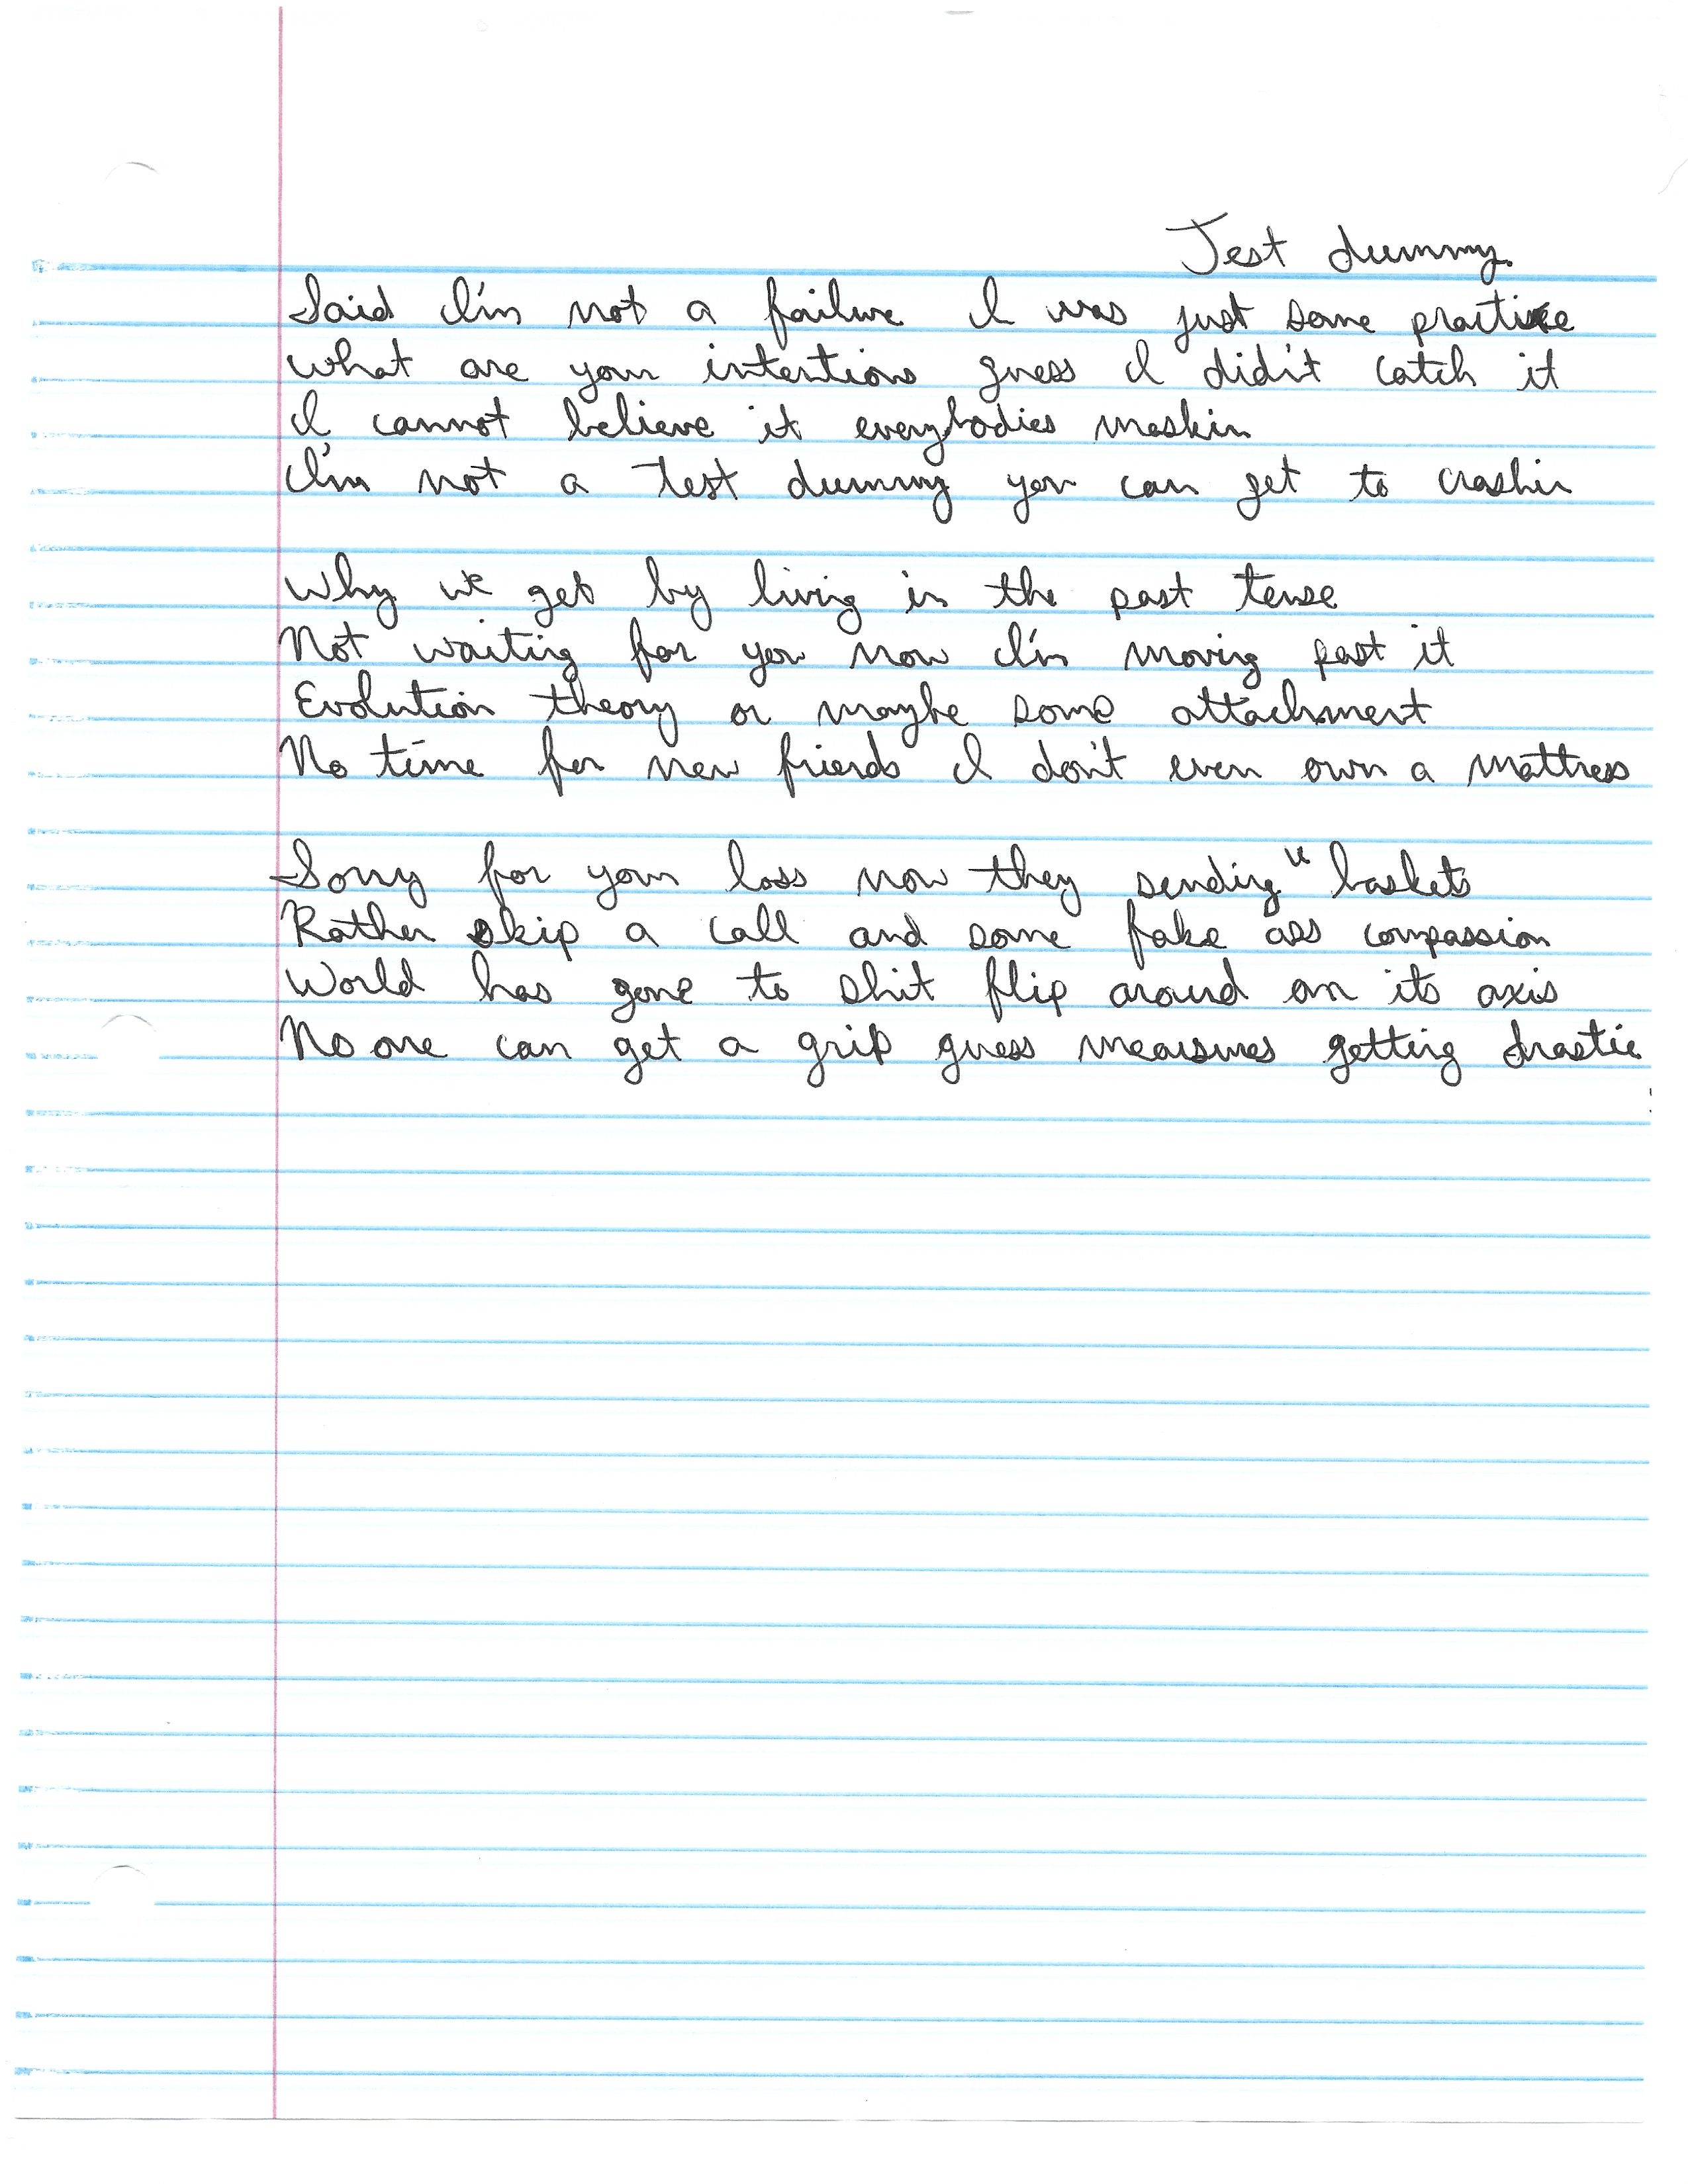 Test dummy
Said I'm not a failure I was just some practice
what are your intentions guess I didn't catch it
I cannot believe it everybodies maskin
I'm not a test dummy you can get to crashin
Why we get by living in the past tense
Not waiting for you now I'm moving past it
Evolution theory or maybe some attachment
No time for new friends I don't even own a mattress
Sorry for your loss now they sending baskets
Rather skip a call and some fake ass compassion
World has gone to shit flip around on its axis
No one can get a grip guess measures getting drastic